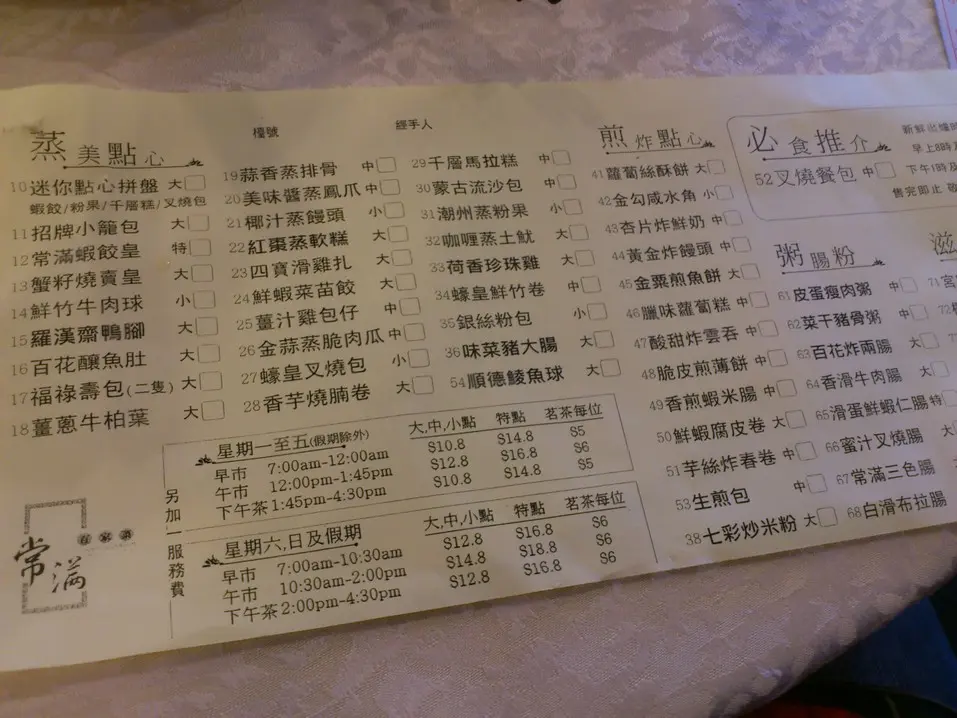 檯號
經手人
蒸美點心
10迷你點心拼盤 大
蝦餃/粉果/千層糕/叉燒包
11招牌小籠包 大
12常滿蝦餃皇 特
13蟹籽燒賣皇 大
14鮮竹牛肉球 小
15羅漢齋鴨腳 大
16百花釀魚肚 大
17福祿壽包(二隻) 大
18薑蔥牛柏葉 大
19蒜香蒸排骨 中
20美味醬蒸鳳爪 中
21椰汁蒸饅頭 小
22紅棗蒸軟糕 大
23四寶滑雞扎 大
24鮮蝦菜苗餃 大
25薑汁雞包仔 中
26金蒜蒸脆肉瓜 中
27蠔皇叉燒包 小
28香芋燒腩卷 大
29千層馬拉糕 中
30蒙古流沙包 中
31潮州蒸粉果 小
32咖喱蒸土魷 大
33荷香珍珠雞 大
34蠔皇鮮竹卷 中
35銀絲粉包 小
36味菜豬大腸 大
54順德鯪魚球 大
煎炸點心
41蘿蔔絲酥餅 大
42金勾咸水角 小
43杏片炸鮮奶 中
44黃金炸饅頭 中
45金粟煎魚餅 大
46臘味蘿蔔糕 中
47酸甜炸雲吞 中
48脆皮煎薄餅 中
49香煎蝦米腸 中
50鮮蝦腐皮卷 大
51芋絲炸春卷 中
53生煎包 中
38七彩炒米粉 大
必食推介
52叉燒餐包 中
新鮮出爐時
早上8時
下午1時及
售完即止 敬
粥腸粉
61皮蛋瘦肉粥 中
62菜干豬骨粥 中
63百花炸兩腸 大
64香滑牛肉腸 大
65滑蛋鮮蝦仁腸 特
66蜜汁叉燒腸 大
67常滿三色腸
68白滑布拉腸
滋
71宮
72
常滿
另加一服務費
星期一至五(假期除外) 大,中,小點 特點 茗茶每位
早市 7:00am-12:00am $10.8 $14.8 $5
午市 12:00pm-1:45pm $12.8 $16.8 $6
下午茶 1:45pm-4:30pm $10.8 $14.8 $5
星期六,日及假期 大,中,小點 特點 茗茶每位
早市 7:00am-10:30am $12.8 $16.8 $6
午市 10:30am-2:00pm $14.8 $18.8 $6
下午茶 2:00pm-4:30pm $12.8 $16.8 $6